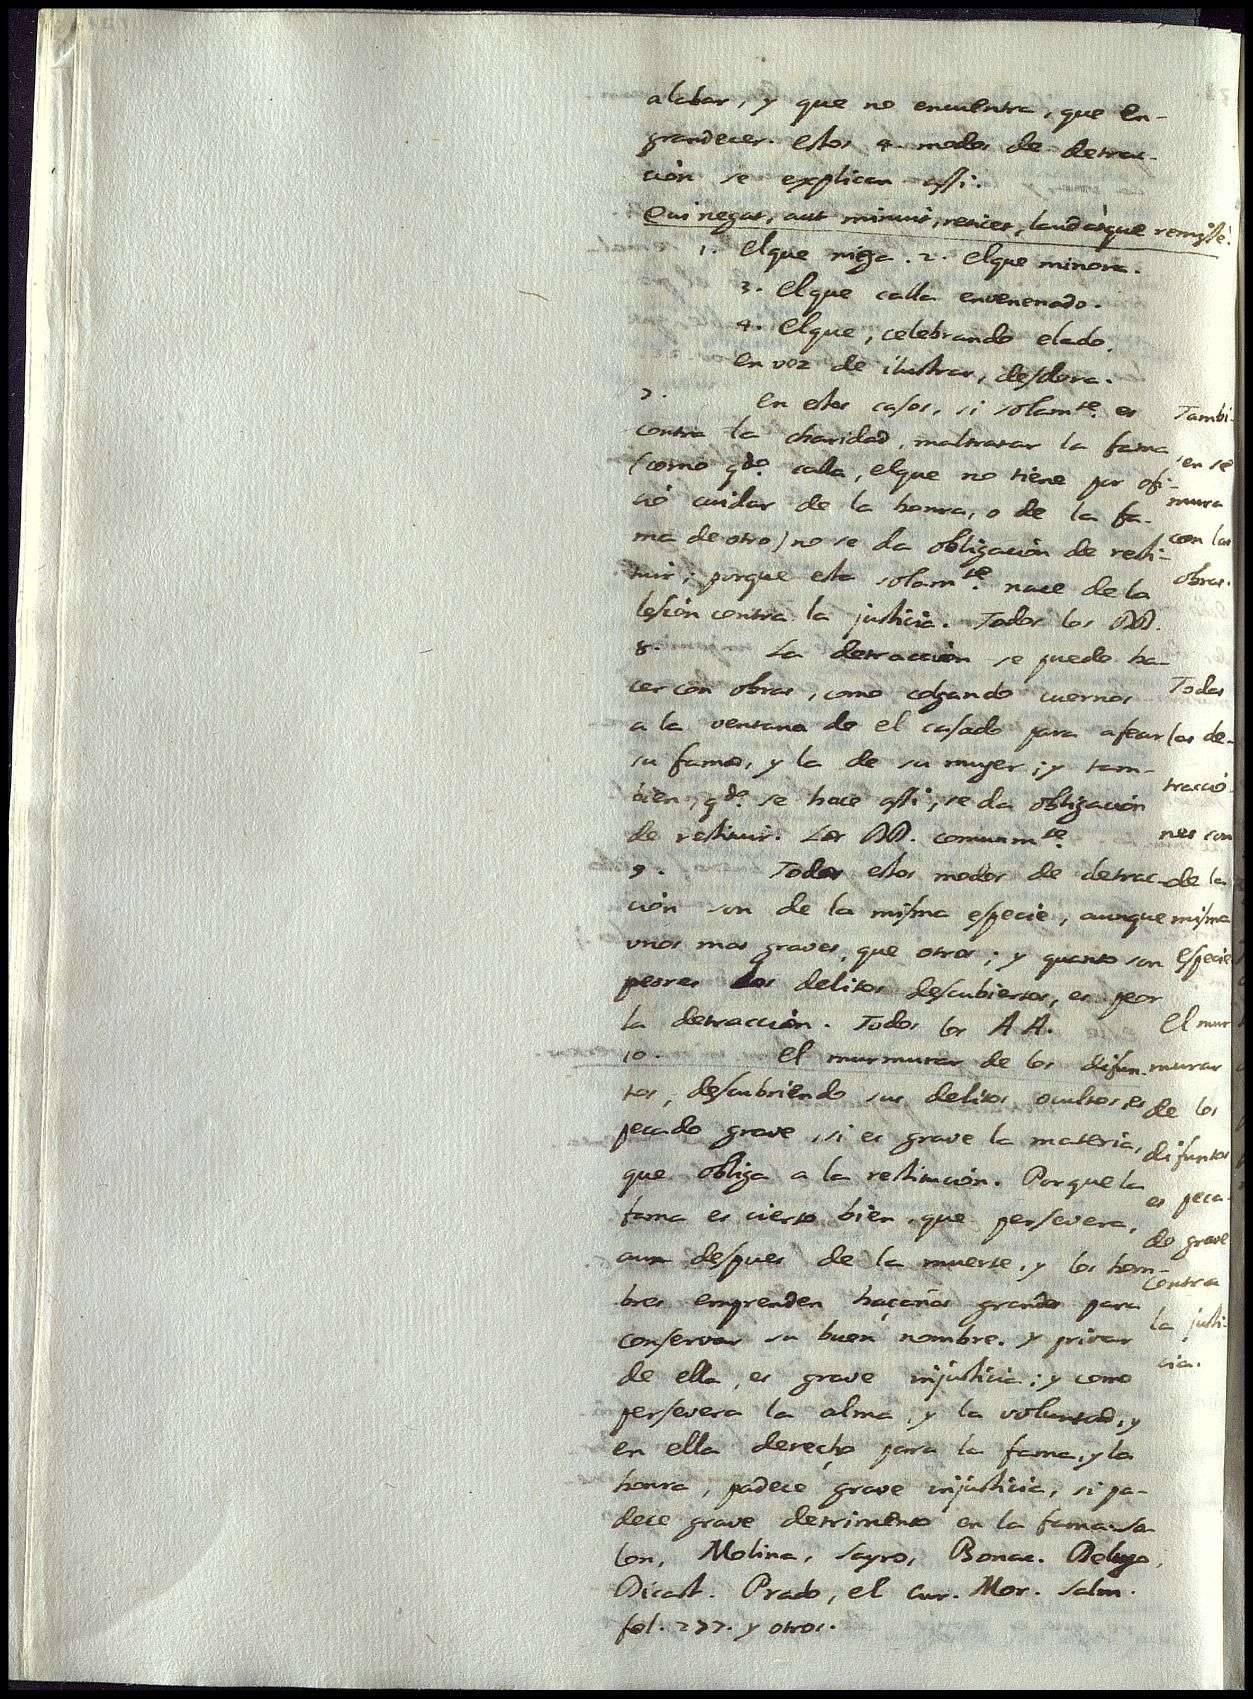 alabar, y que no encuentra, que en-
grandecer. Estos 4. modos de detrac-
cion se explican assi.
Qui negat, aut minuit, reticet, laudatque remissè.
1. El que niega. 2. El que minora.
3. El que calla envenenado.
4. El que, celebrando elado,
en vez de ilustrar, desdora.
7. En estos casos, si solam.te es
contra la charidad, maltratar la fama
(como q.do calla, el que no tiene por ofi-
cio cuidar de la honra, o de la fa-
ma de otro) no se da obligacion de resti-
tuir; porque esta solam.te nace de la
lesion contra la justicia. Todos los DD.
8. La detraccion se puede ha-
cer con obras, como colgando cuernos
a la ventana de el casado para afear
su fama, y la de su muger; y tam-
bien, q.do se hace assi, se da obligacion
de restituir. Los DD. comunm.te
9. Todos estos modos de detrac-
cion son de la misma especie, aunque
unos mas graves, que otros; y quanto son
peores los delitos descubiertos, es peor
la detraccion. Todos los AA.
10. El murmurar de los difun-
tos, descubriendo sus delitos ocultos, es
pecado grave, si es grave la materia,
que obliga a la restitucion. Porque la
fama es cierto bien, que persevera,
aun despues de la muerte, y los hom-
bres emprenden haçañas grandes para
conservar su buen nombre. y privar
de ella, es grave injusticia; y como
persevera la alma, y la voluntad, y
en ella derecho para la fama, y la
honra, padece grave injusticia, si pa-
dece grave detrimento en la fama. Sa-
lon, Molina, Sayro, Bonac. Delugo,
Dicast. Prado, el Cur. Mor. Salm.
fol. 277. y otros.
Tambi-
en se
mura
con las
obras.
Todas
las de-
traccio-
nes son
de la
misma
especie
El mur
murar
de los
difuntos
es peca-
do grave
contra
la justi-
cia.